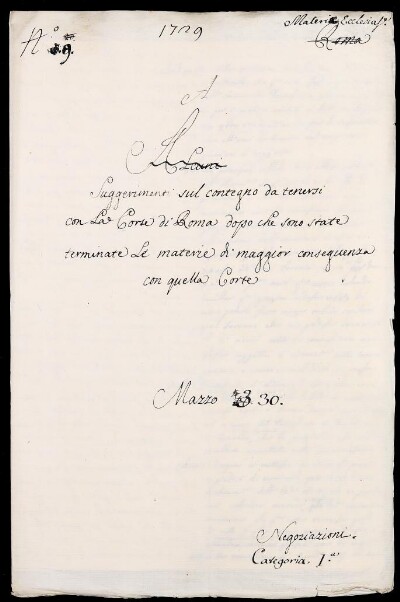 1729
Materie Ecclesia.ᵉ
Roma
N.° 9.
A
Alcuni
Suggerimenti sul contegno da tenersi
con La Corte di Roma dopo che sono state
terminate Le materie di maggior conseguenza
con quella Corte
Mazzo 30.
Negoziazioni.
Categoria. 1.ª